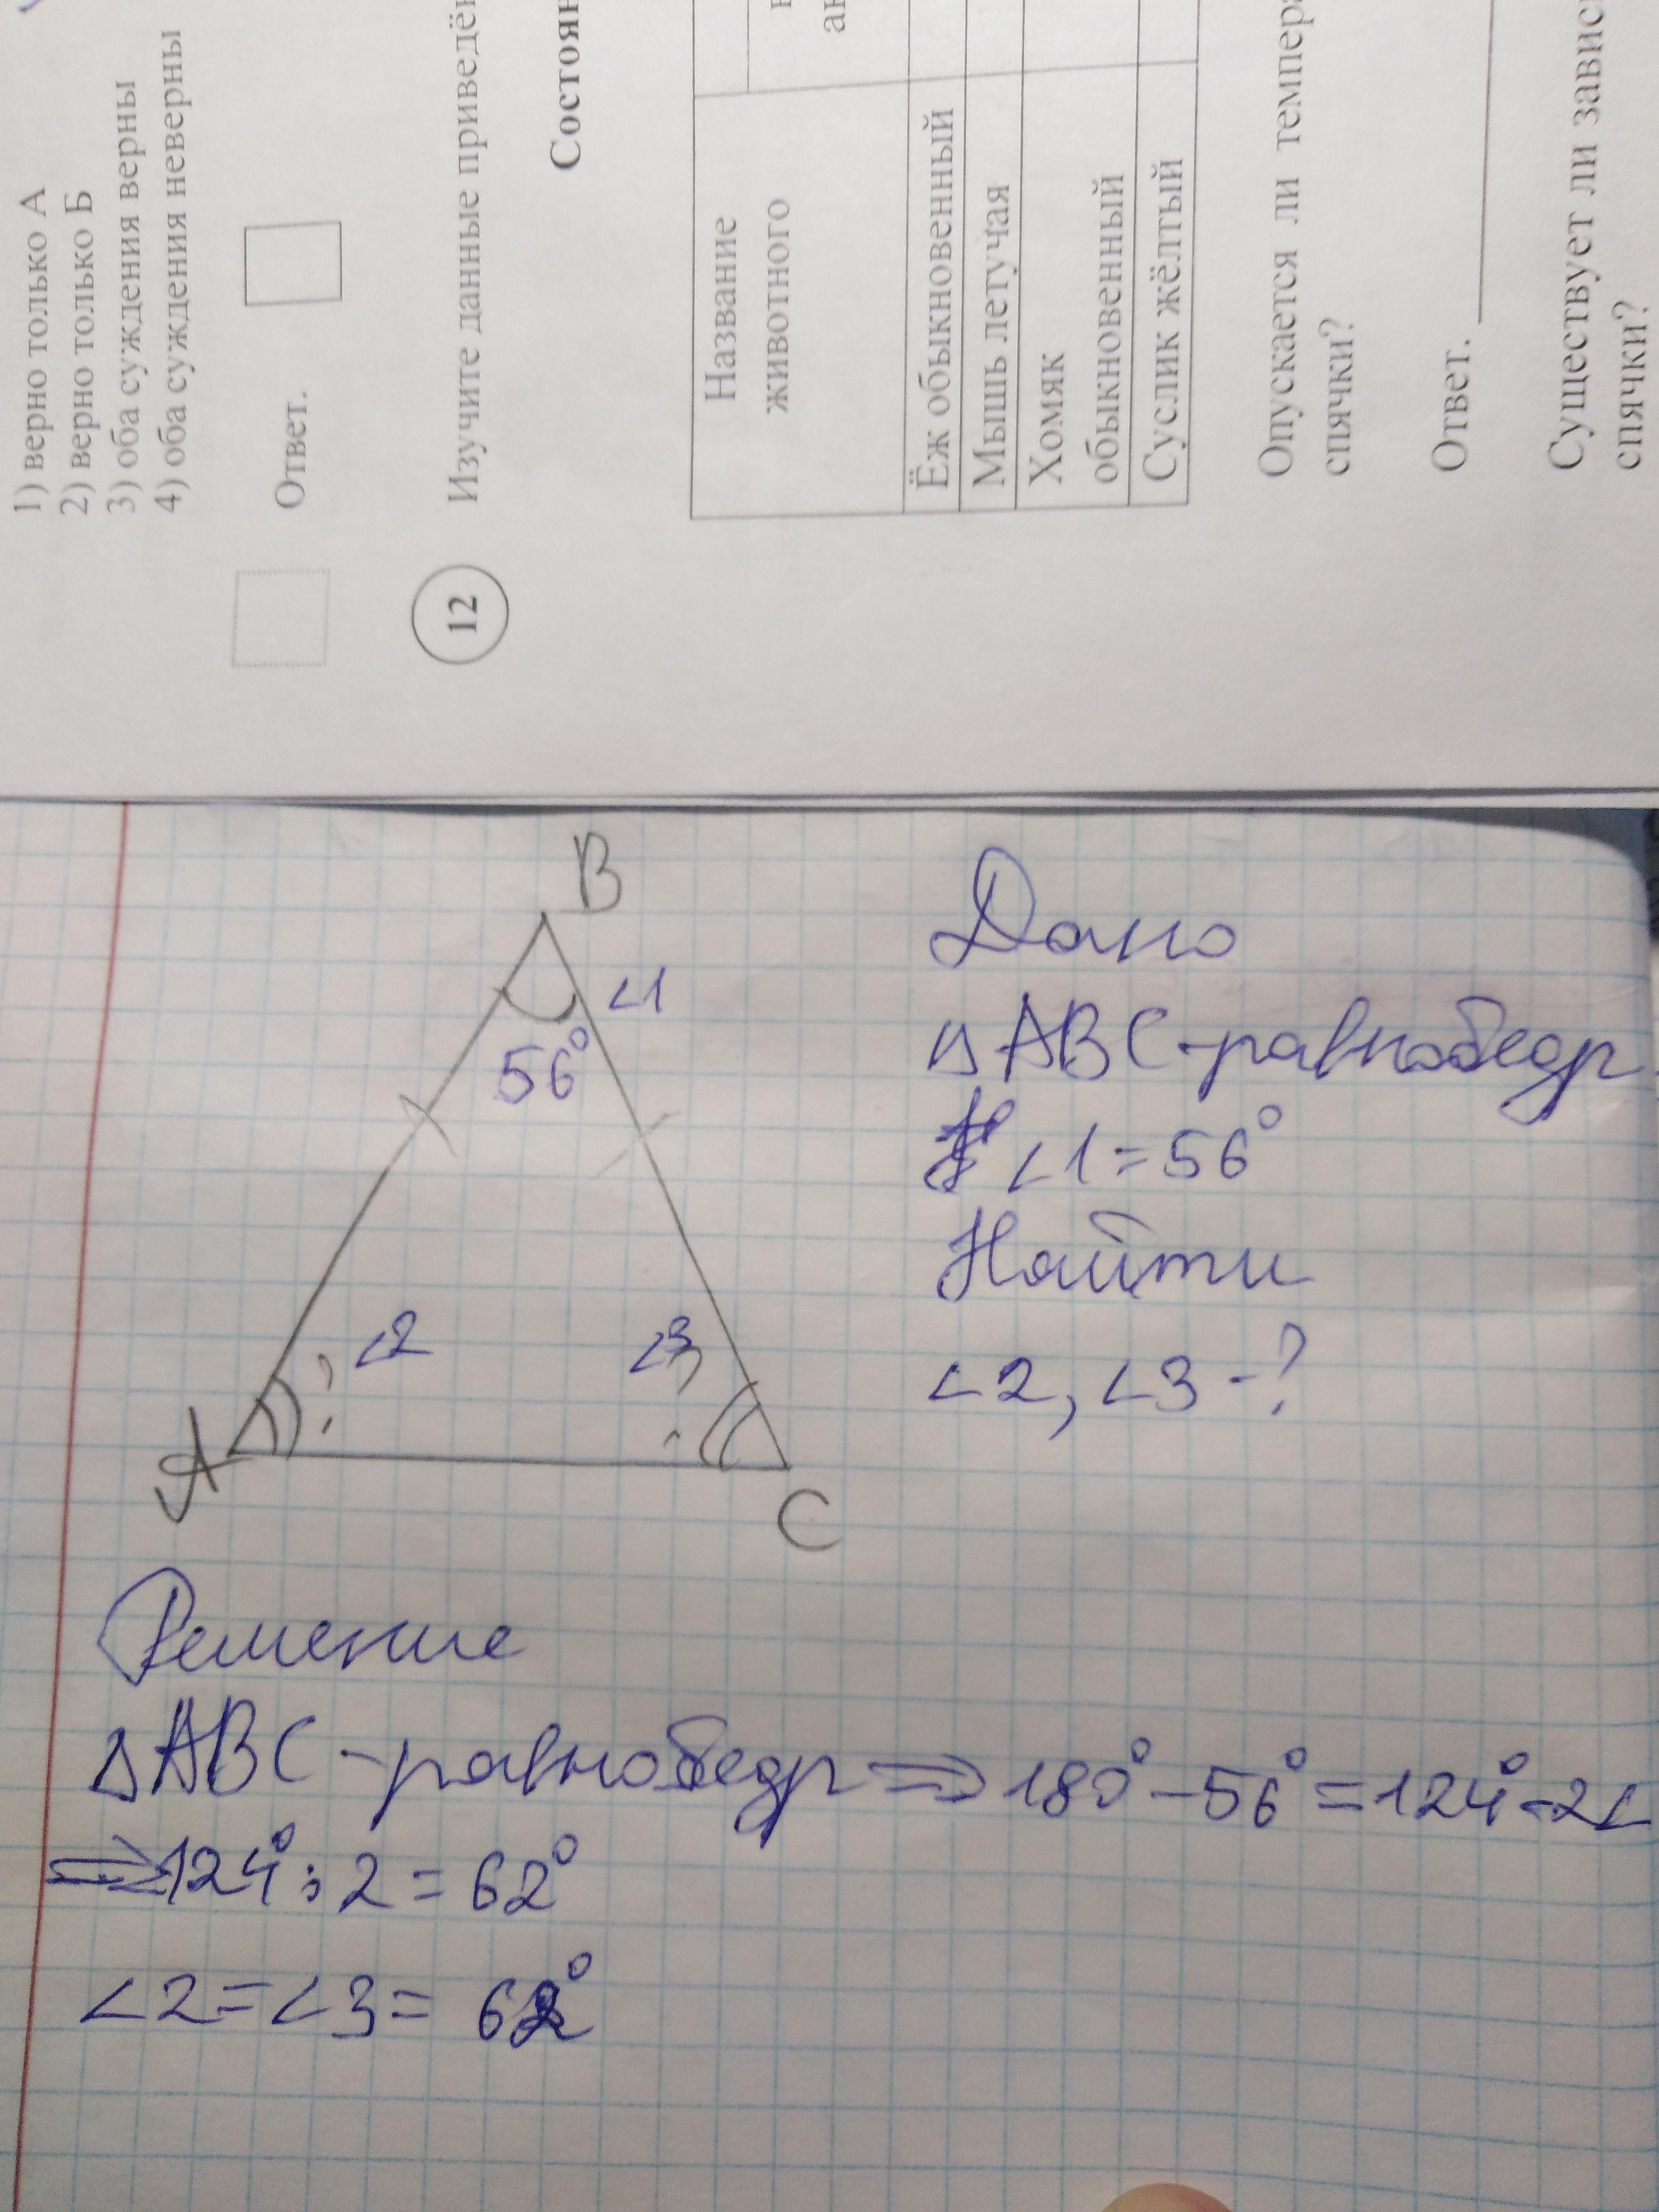 1) верно только А
2) верно только Б
3) оба суждения верны
4) оба суждения неверны
Ответ.
12
Изучите данные приведён
Состоян
Название
животного
Ёж обыкновенный
Мышь летучая
Хомяк
обыкновенный
Суслик жёлтый
Опускается ли темпера
спячки?
Ответ.
Существует ли зависи
спячки?
B
∠1
56°
∠2
?
∠3
?
A
C
Дано
△ABC-равнобедр
∠1=56°
Найти
∠2, ∠3 -?
Решение
△ABC-равнобедр ⇒ 180°-56°=124°-2∠
⇒124°:2=62°
∠2=∠3= 62°